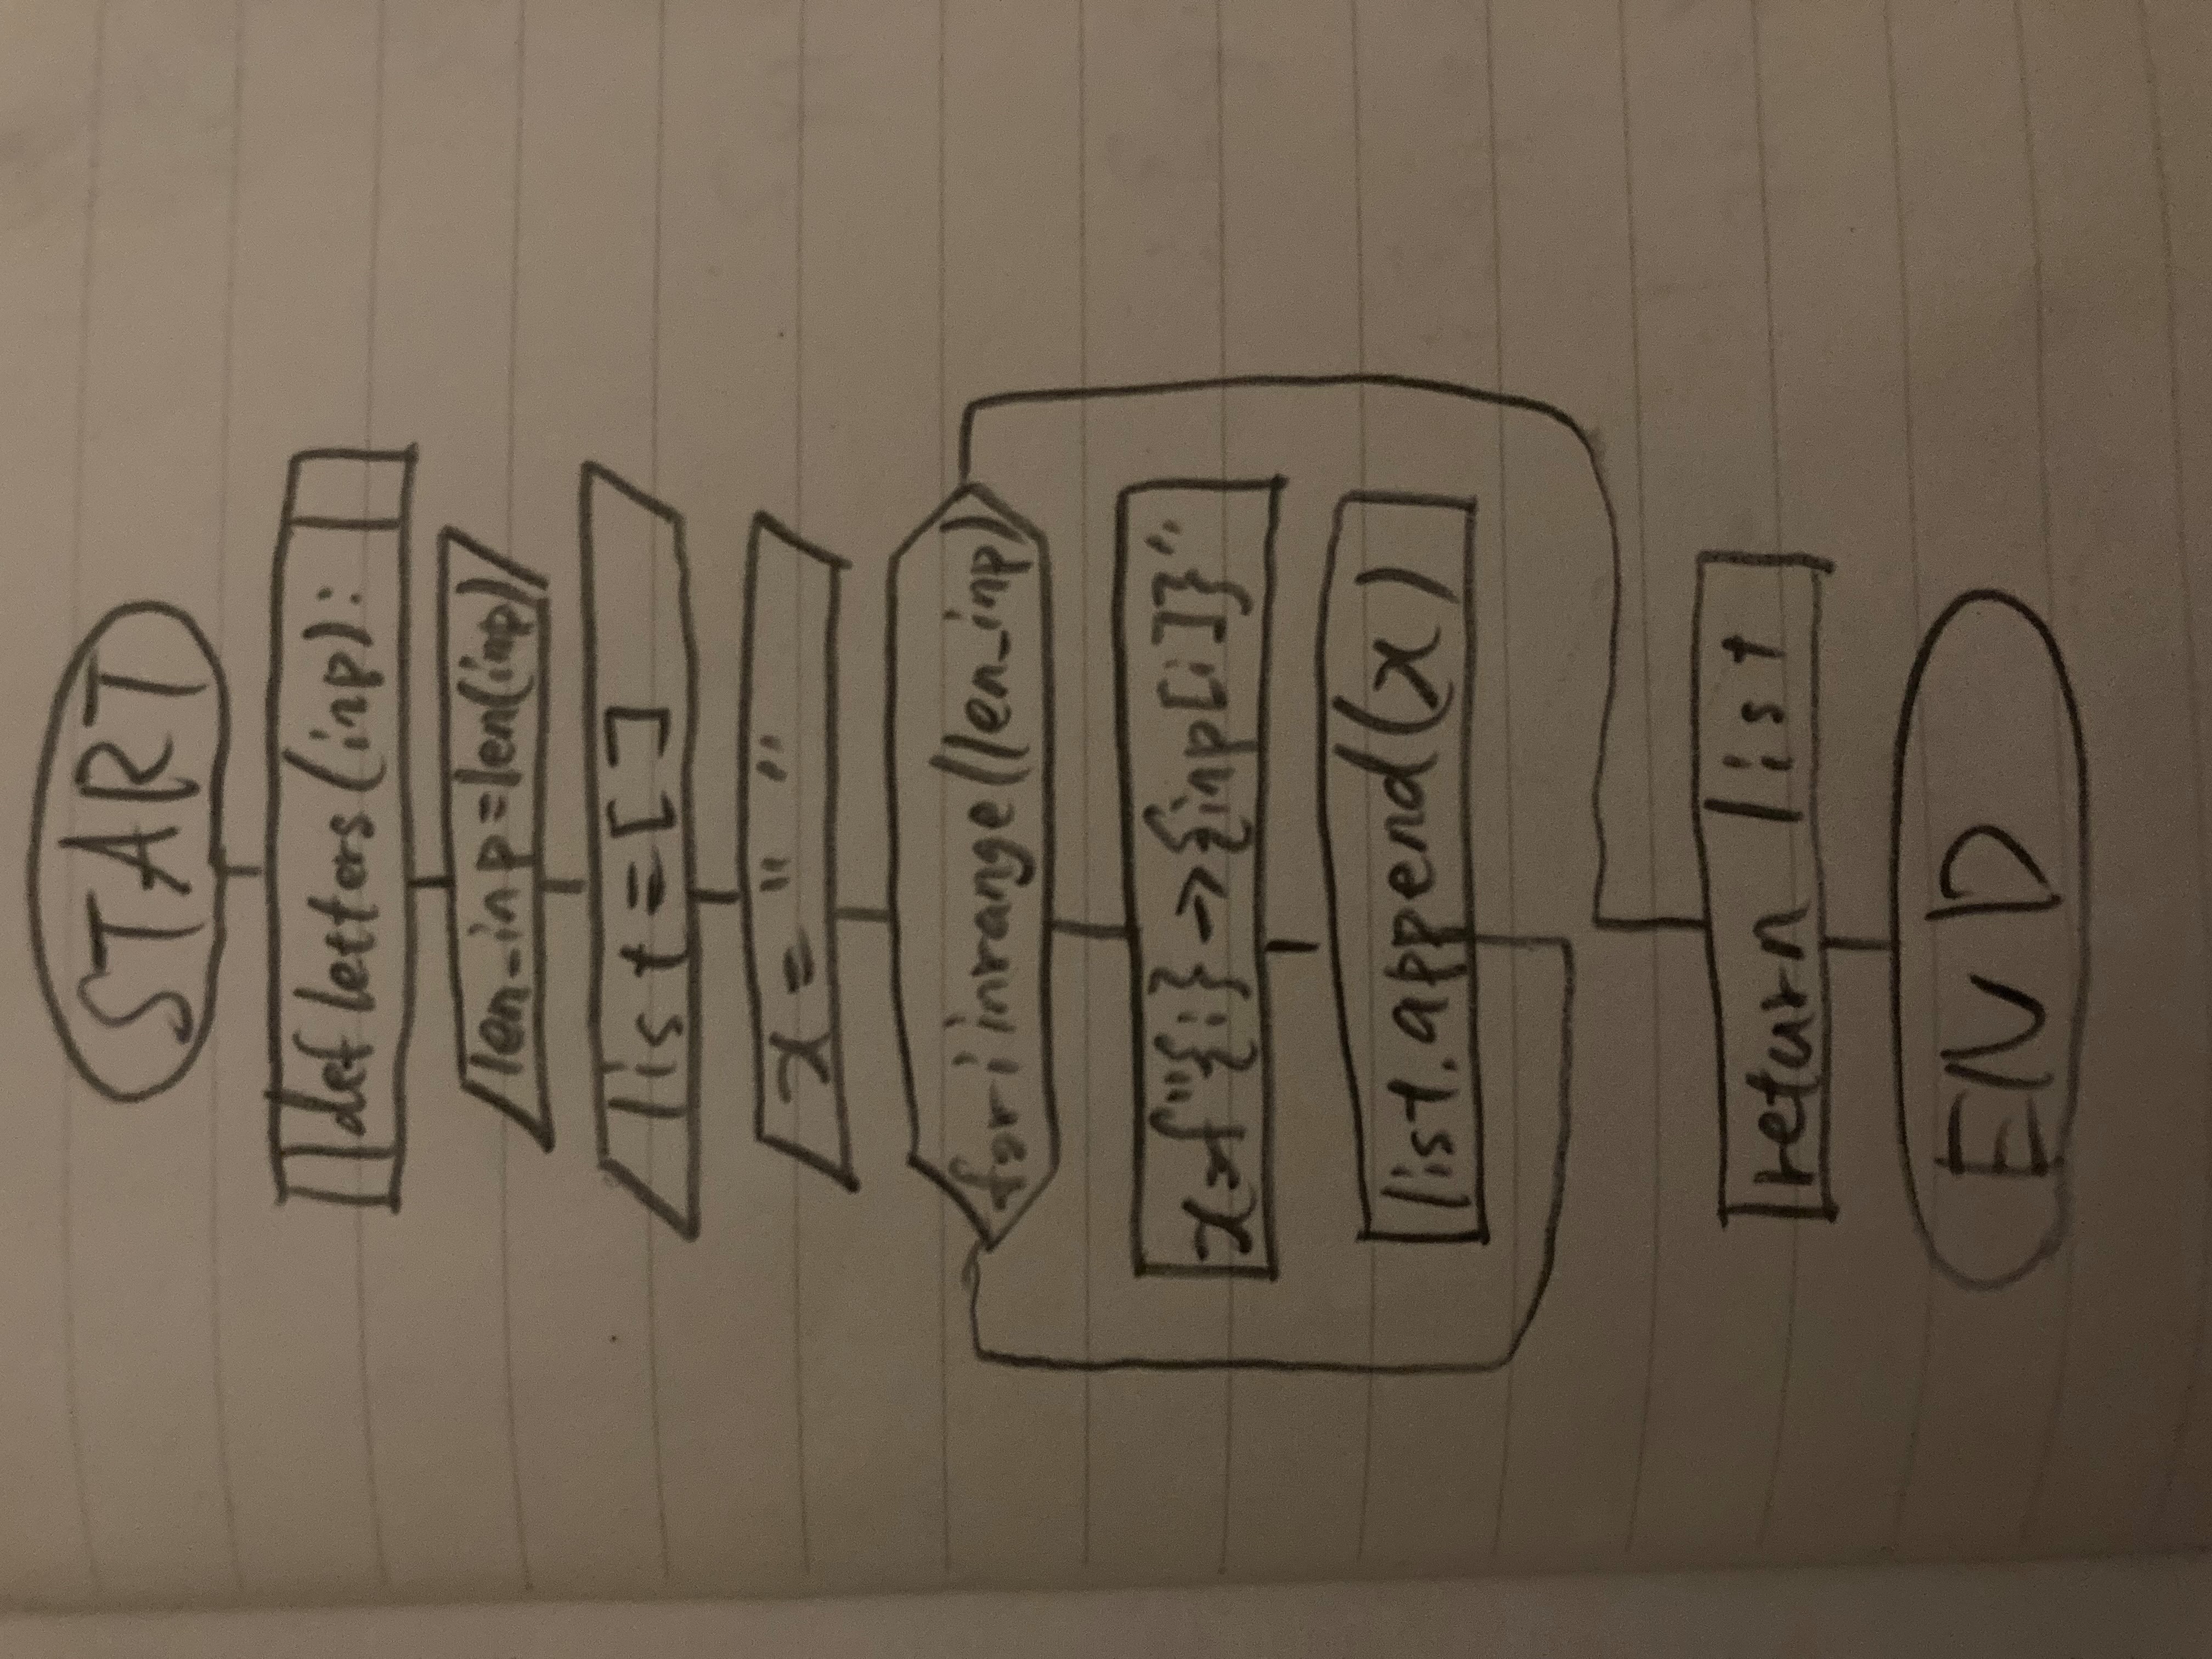 START
def letters(inp):
len_inp=len(inp)
list=[]
x=" "
for i inrange(len_inp)
x=f"{i}->{inp[i]}"
list.append(x)
return list
END